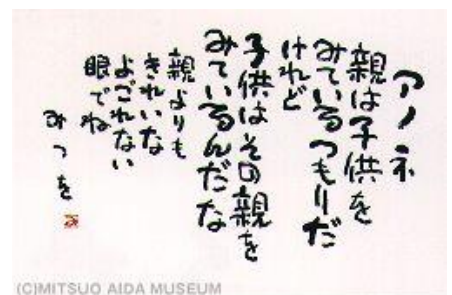 アノネ
親は子供を
みているつもりだ
けれど
子供はその親を
みているんだな
親よりも
きれいな
よごれない
眼でね
みつを
(C)MITSUO AIDA MUSEUM